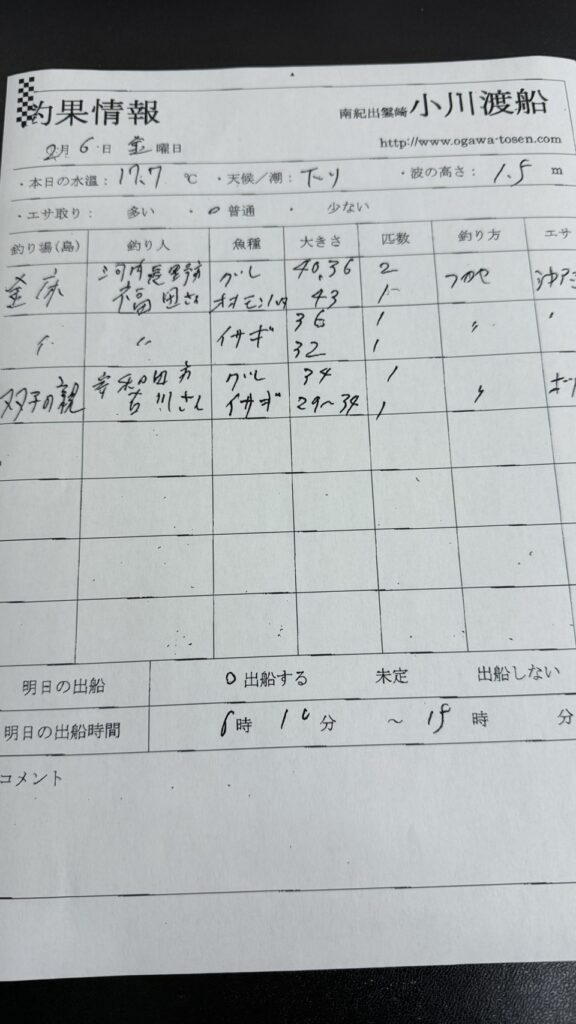 釣果情報
南紀出雲崎 小川渡船
http://www.ogawa-tosen.com
2月 6日 金 曜日
・本日の水温： 17.7 ℃ ・天候／潮： 下り ・波の高さ： 1.5 m
・エサ取り： 多い ・ 0 普通 ・ 少ない
釣り場（島） 釣り人 魚種 大きさ 匹数 釣り方 エサ
釜床 河内長野市 グレ 40.36 2 フカセ 沖アミ
福田さん オオモンハタ 43 1
〃 〃 イサギ 36 1 〃
32 1
双子の親 岸和田市 グレ 34 1 〃
古川さん イサギ 29〜34
明日の出船 0 出船する 未定 出船しない
明日の出船時間 6時 10分 〜 15時 分
コメント